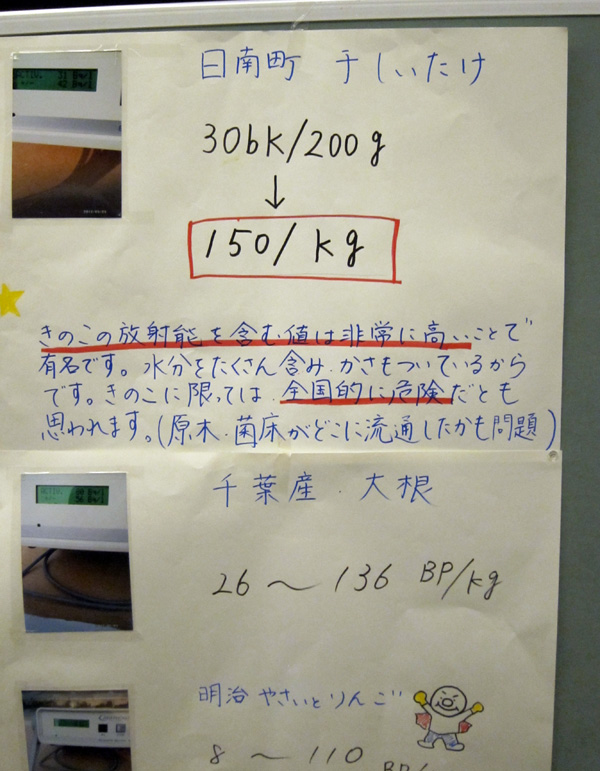 日南町 干しいたけ
30bK/200g
↓
150/kg
きのこの放射能を含む値は非常に高いことで
有名です。水分をたくさん含み、かさもついているから
です。きのこに限っては、全国的に危険だとも
思われます。(原木・菌床がどこに流通したかも問題)
千葉産・大根
26〜136 BP/kg
明治 やさいとりんご
8〜110